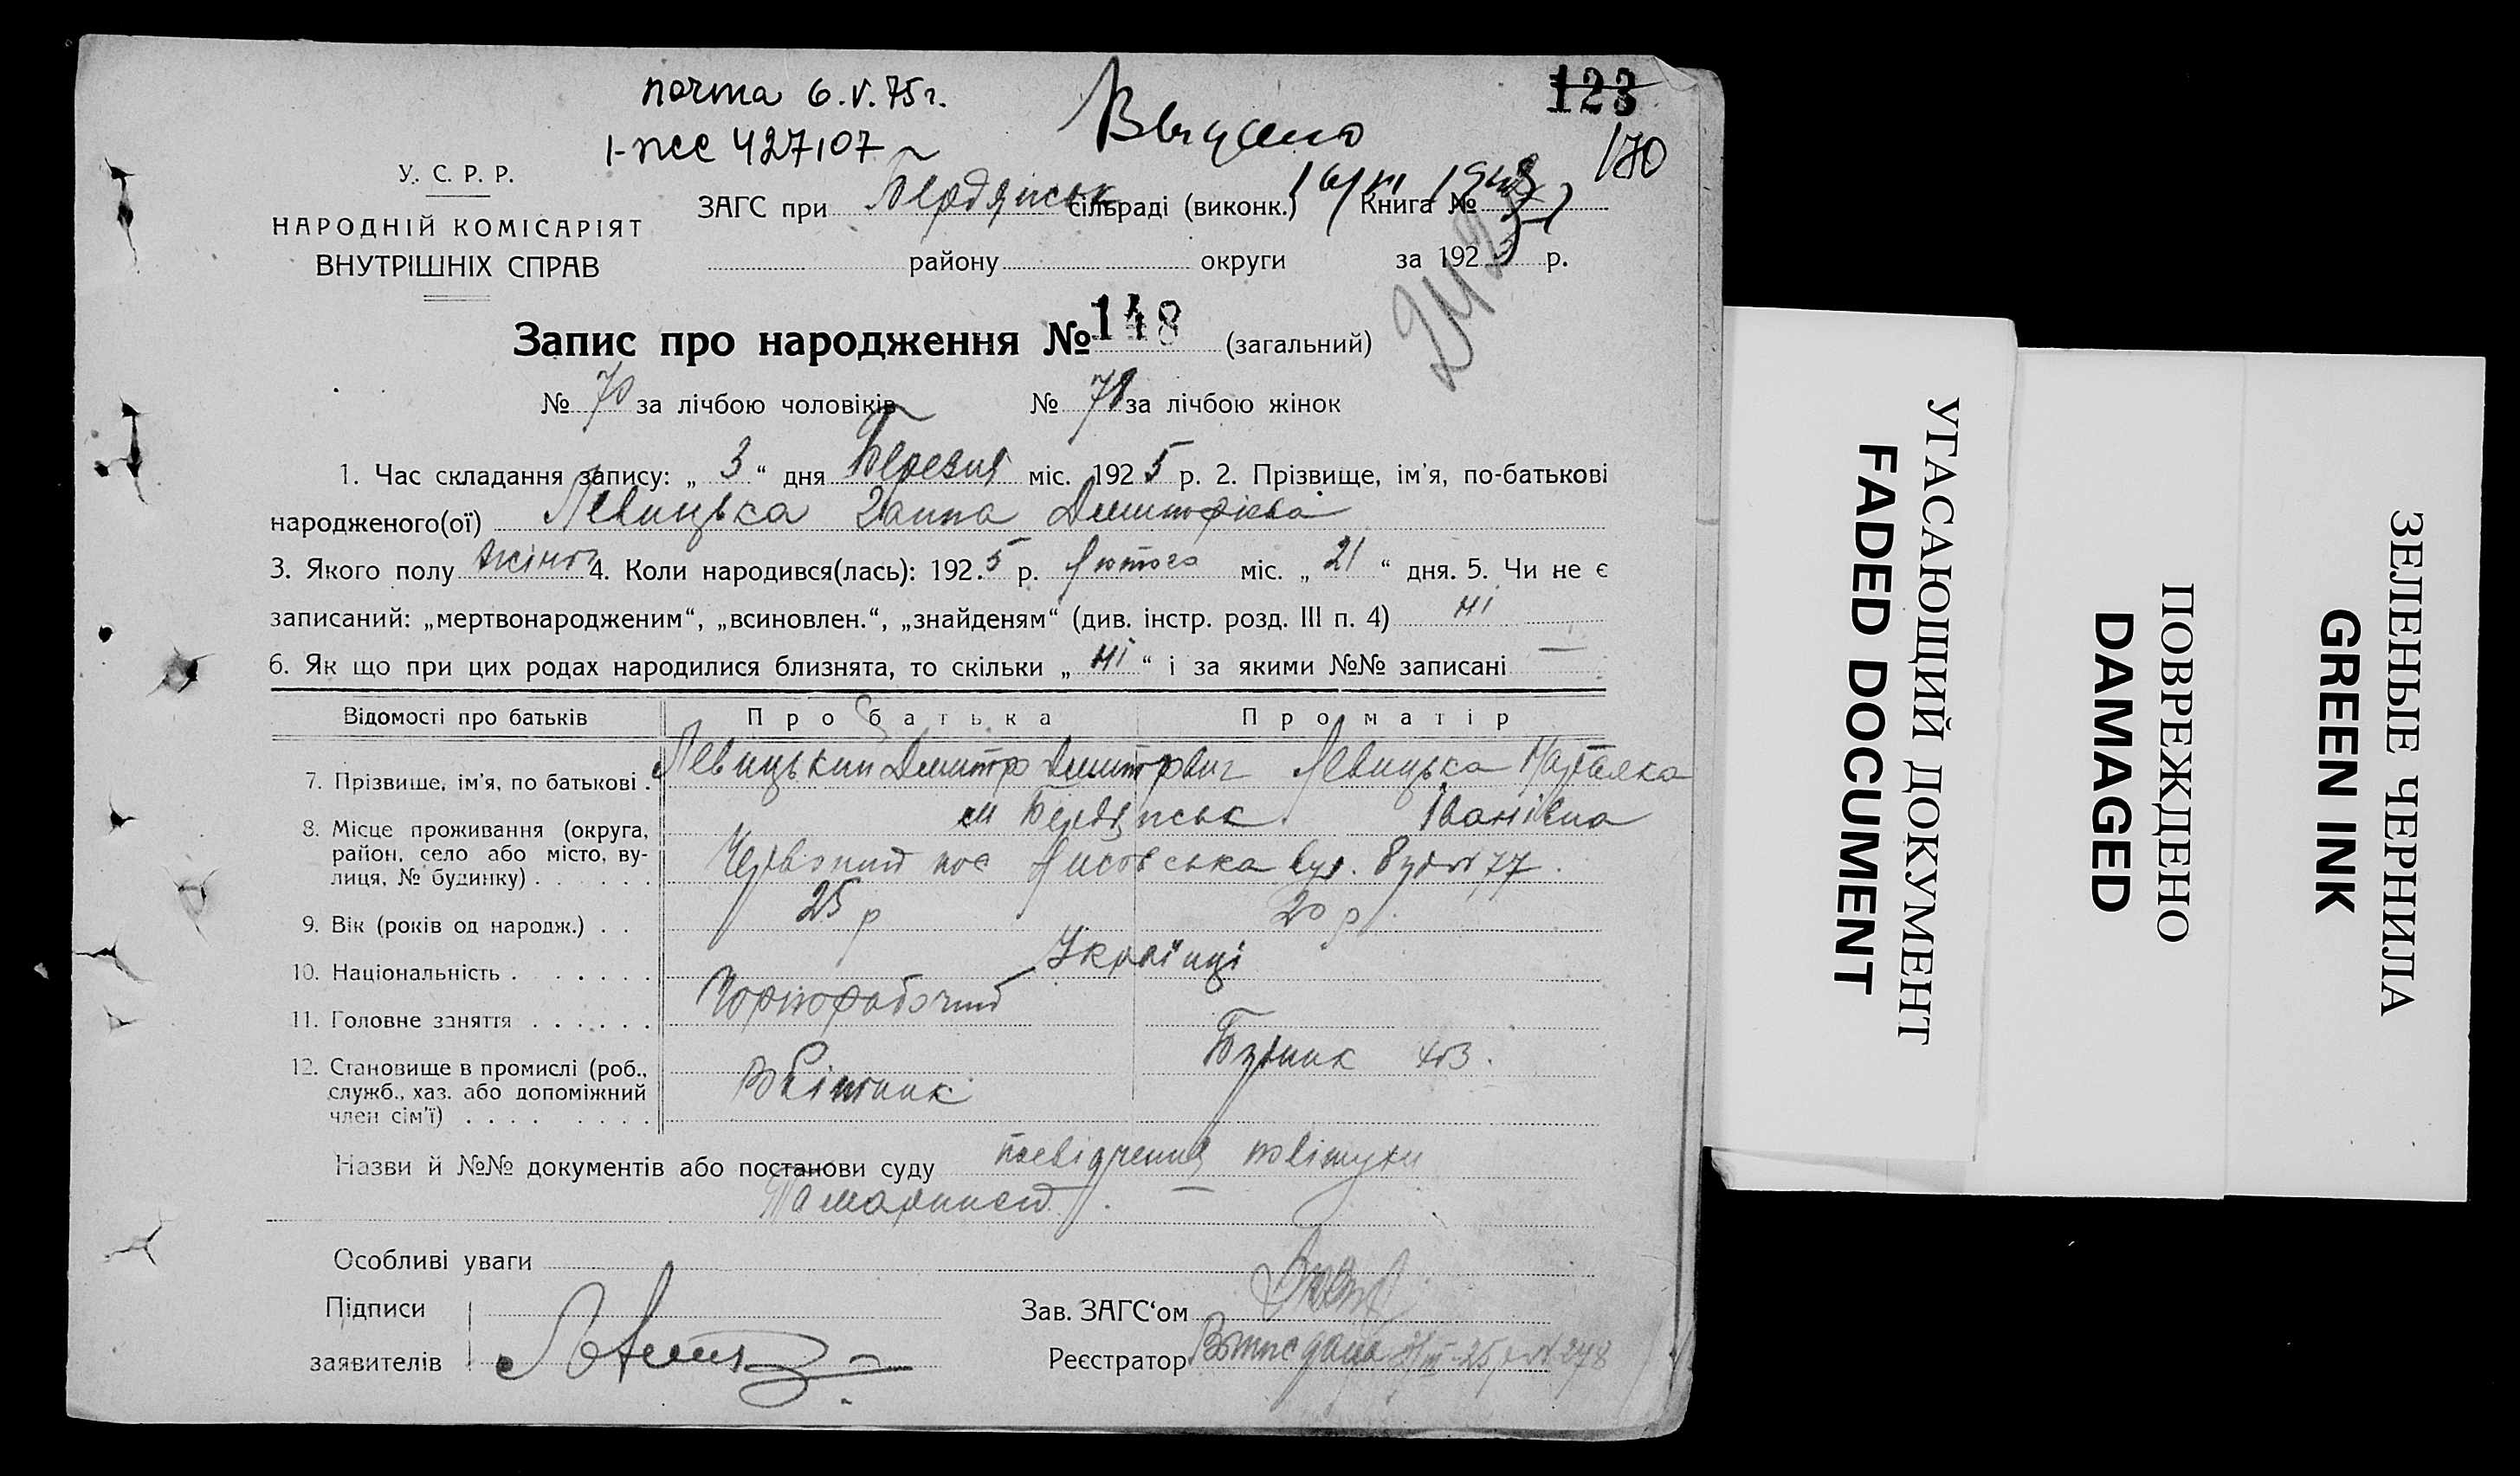 почта 6.V.75г.
123
I-ЖС 427107
Выдано
170
У. С. Р. Р.
НАРОДНІЙ КОМІСАРІЯТ
ВНУТРІШНІХ СПРАВ
ЗАГС при Бердянськ сільраді (виконк.) Книга №
району округи за 1925 р.
Запис про народження № 148 (загальний)
№ 70 за лічбою чоловіків № 78 за лічбою жінок
1. Час складання запису: „ 3 “ дня Березня міс. 1925 р. 2. Прізвище, ім'я, по-батькові
народженого(ої) Левицька Ганна Дмитрієва
3. Якого полу жіноч 4. Коли народився(лась): 1925 р. Лютого міс. „ 21 “ дня. 5. Чи не є
записаний: „мертвонародженим“, „всиновлен.“, „знайденям“ (див. інстр. розд. III п. 4) ні
6. Як що при цих родах народилися близнята, то скільки „ ні “ і за якими №№ записані —
Відомості про батьків Про батька Про матір
7. Прізвище, ім'я, по батькові . Левицький Дмитро Дмитрович Левицька Наталка
Іванівна
8. Місце проживання (округа, м Бердянськ
район, село або місто, ву-
лиця, № будинку) . . . . . . Червоний пос Лисовська вул. буд № 77.
9. Вік (років од народж.) . . 25 р 20 р.
10. Національність . . . . . . Українці
11. Головне заняття . . . . . . Чорноробочий
12. Становище в промислі (роб.,
служб., хаз. або допоміжний
член сім'ї) . . . . . . . . Робітник
Назви й №№ документів або постанови суду посвідчення повітухи
Особливі уваги
Підписи
заявителів
Зав. ЗАГС‘ом
Реєстратор
УГАСАЮЩИЙ ДОКУМЕНТ
FADED DOCUMENT
ПОВРЕЖДЕНО
DAMAGED
ЗЕЛЕНЫЕ ЧЕРНИЛА
GREEN INK